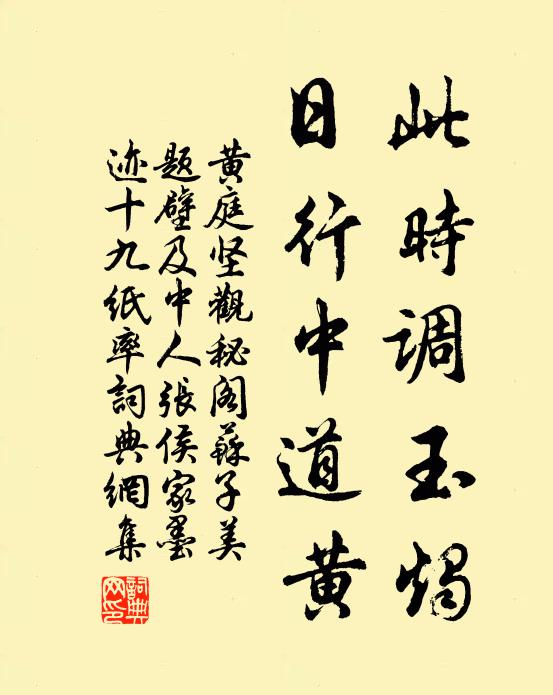 此時調玉燭
日行中道黄
黄庭坚觀秘阁蘇子美
题壁及中人張侯家墨
迹十九纸率詞典網集
詞典